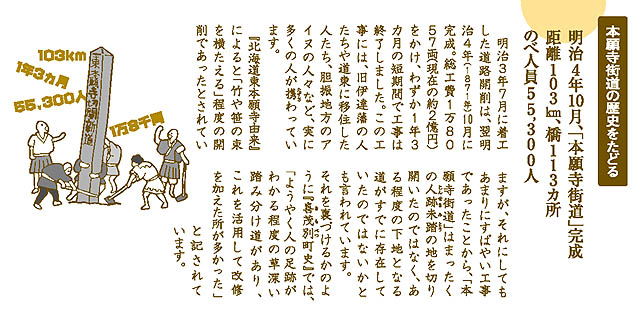 本願寺街道の歴史をたどる
明治4年10月、「本願寺街道」完成
距離103㎞、橋113カ所
のべ人員55,300人
明治3年7月に着工
した道路開削は、翌明
治4年(1871年)10月に
完成。総工費1万80
57両(現在の約2億円)
をかけ、わずか1年3
カ月の短期間で工事は
終了しました。この工
事には、旧伊達藩の人
たちや道東に移住した
人たち、胆振地方のア
イヌの人々など、実に
多くの人が携わってい
ます。
『北海道東本願寺由来』
によると「竹や笹の束
を横たえる」程度の開
削であったとされてい
ますが、それにしても
あまりにすばやい工事
であったことから、「本
願寺街道」はまったく
の人跡未踏の地を切り
開いたのではなく、あ
る程度の下地となる
道がすでに存在して
いたのではないかと
も言われています。
それを裏づけるかのよ
うに『喜茂別町史』では、
「ようやく人の足跡が
わかる程度の草深い
踏み分け道があり、
これを活用して改修
を加えた所が多かった」
と記されて
います。
103km
1年3カ月
55,300人
1万8千両